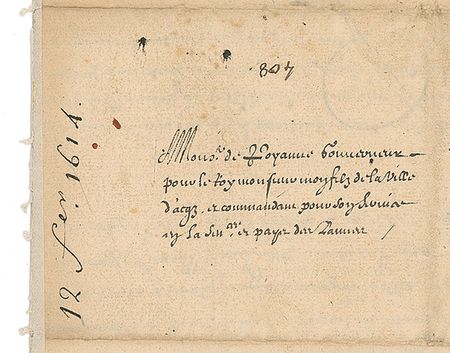 807
12 fer. 1614.
Mons.r de Poyanne Gouverneur
pour le Roy monsieur mon filz de la ville
d'acqz, et commandant pour son service
en la sen.ee et pays des Lannes /